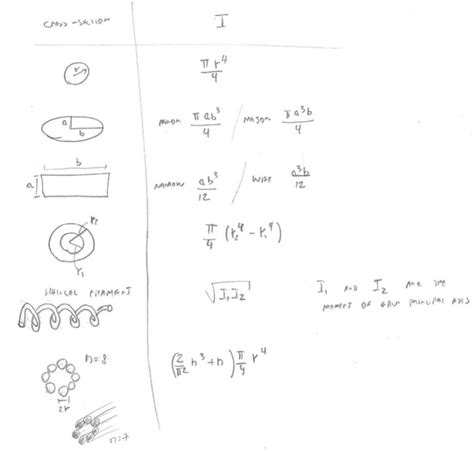 CROSS-SECTION I
r π r⁴/4
a b MINOR π ab³/4 / MAJOR π a³b/4
b
a NARROW ab³/12 / WIDE a³b/12
r₂ r₁ π/4 (r₂⁴ - r₁⁴)
HELICAL FILAMENT √I₁I₂ I₁ AND I₂ ARE THE
MOMENT OF EACH PRINCIPAL AXIS
n=8 (2/π² n³ + n) π/4 r⁴
2r
n=7